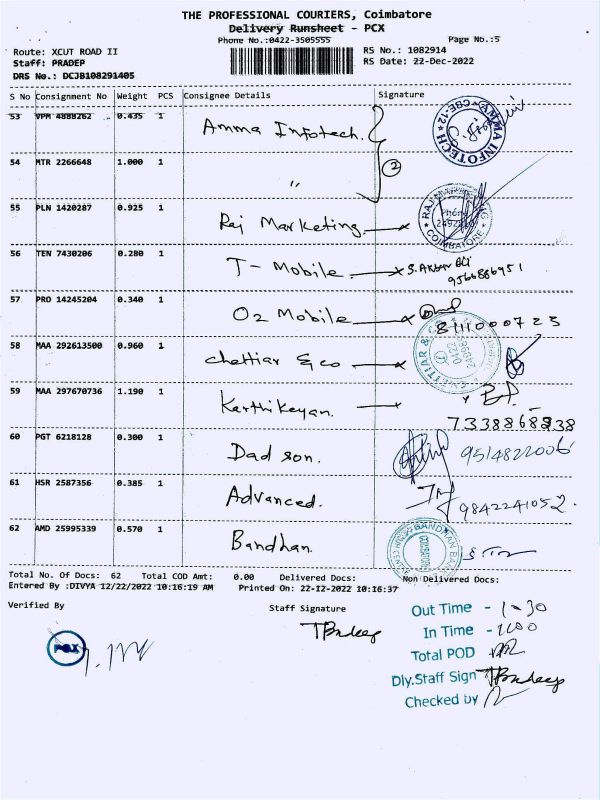 THE PROFESSIONAL COURIERS, Coimbatore
Delivery Runsheet - PCX
Phone No.:0422-3505555
Page No.:5
Route: XCUT ROAD II
RS No.: 1082914
Staff: PRADEP
RS Date: 22-Dec-2022
DRS No.: DCJB108291405
S No Consignment No Weight PCS Consignee Details Signature
53 VPM 4888262 0.435 1 Amma Infotech.
AMMA INFOTECH CBE-12
2
54 MTR 2266648 1.000 1 "
55 PLN 1420287 0.925 1 Raj Marketing
RAJ MARKETING Phone COIMBATORE
56 TEN 7430206 0.280 1 T-Mobile. S. AKBAR Ali
9566886951
57 PRO 14245204 0.340 1 O2 Mobile
8111000725
58 MAA 292613500 0.960 1 Chettiar & co
CHETTIAR & CO 0422
59 MAA 297670736 1.190 1 Karthikeyan.
7338868238
60 PGT 6218128 0.300 1 Dad son. 9514822006
61 HSR 2587356 0.385 1 Advanced. 9842241052.
62 AMD 25995339 0.570 1 Bandhan.
BANDHAN BANK COIMBATORE
Total No. Of Docs: 62 Total COD Amt: 0.00 Delivered Docs: Non Delivered Docs:
Entered By :DIVYA 12/22/2022 10:16:19 AM Printed On: 22-12-2022 10:16:37
Verified By
Staff Signature
TPradeep
PCX
Out Time - 1-30
In Time - 1200
Total POD
Dly.Staff Sign TPradeep
Checked by